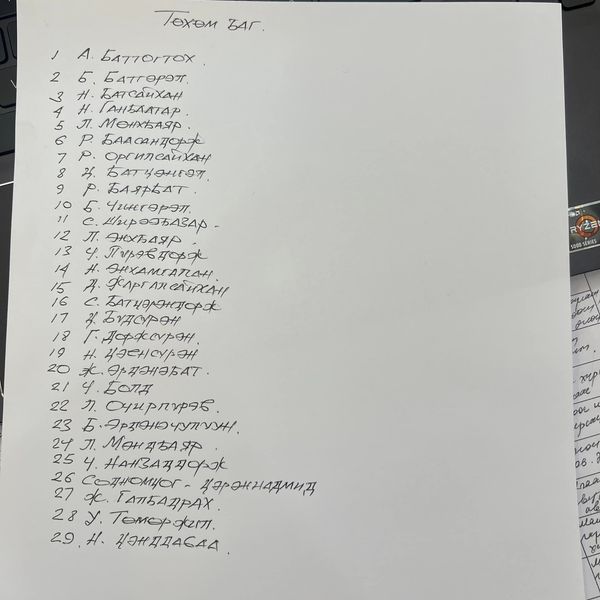 Төхөм баг.
1 А. Баттогтох.
2 Б. Батгэрэл.
3 Н. Батсайхан
4 Н. Ганбаатар.
5 Л. Мөнхбаяр.
6 Р. Баасандорж
7 Р. Оргилсайхан
8 Ц. Батцэнгэл.
9 Р. Баярбат.
10 Б. Чингэрэл.
11 С. Ширээбазар-
12 Л. Энхбаяр.
13 Ч. Пүрэвдорж
14 Н. Энхамгалан.
15 Д. Жаргалсайхан
16 С. Батцэрэндорж
17 Ц. Будсүрэн
18 Г. Доржсүрэн.
19 Н. Цэенсүрэн
20 Ж. Эрдэнэбат.
21 Ч. Болд
22 Л. Очирпүрэв.
23 Б. Эрдэнэчулуун.
24 Л. Мэндбаяр.
25 Ч. Нанзаддорж
26 Содномцог-Цэрэннадмид
27 Ж. Галбадрах.
28 У. Төмөржил.
29. Н. Цэнддаваа.
RYZEN
5000 SERIES